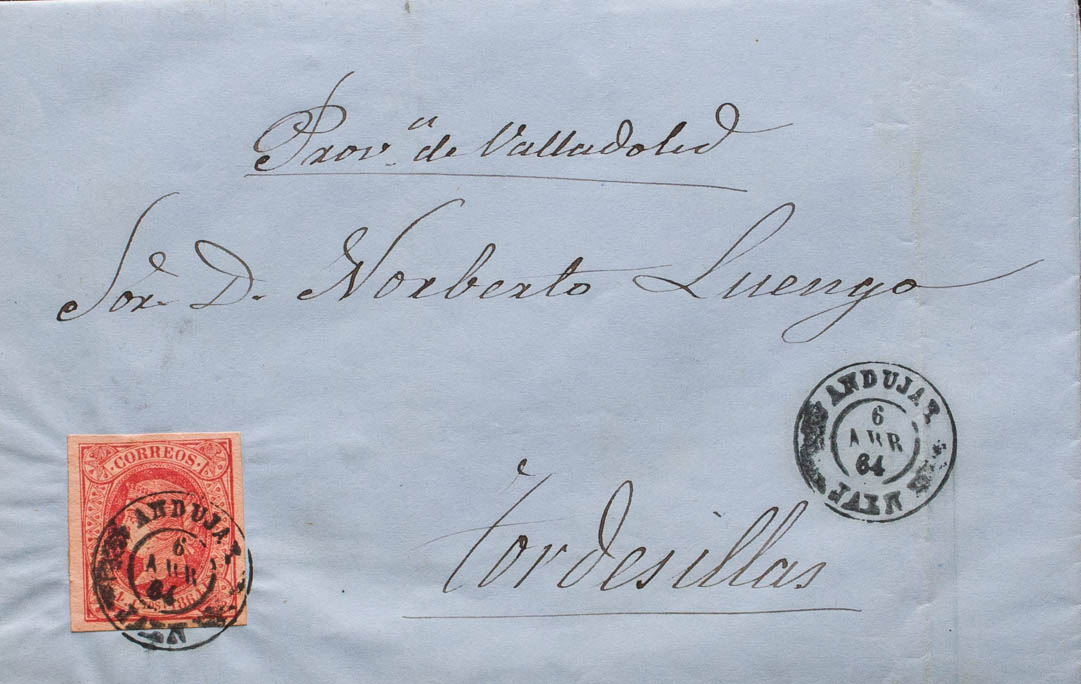 Prov.ª de Valladolid
Sor. D. Norberto Luengo
ANDUJAR
6
ABR
64
JAEN
CORREOS
ANDUJAR
6
ABR
64
JAEN
Tordesillas